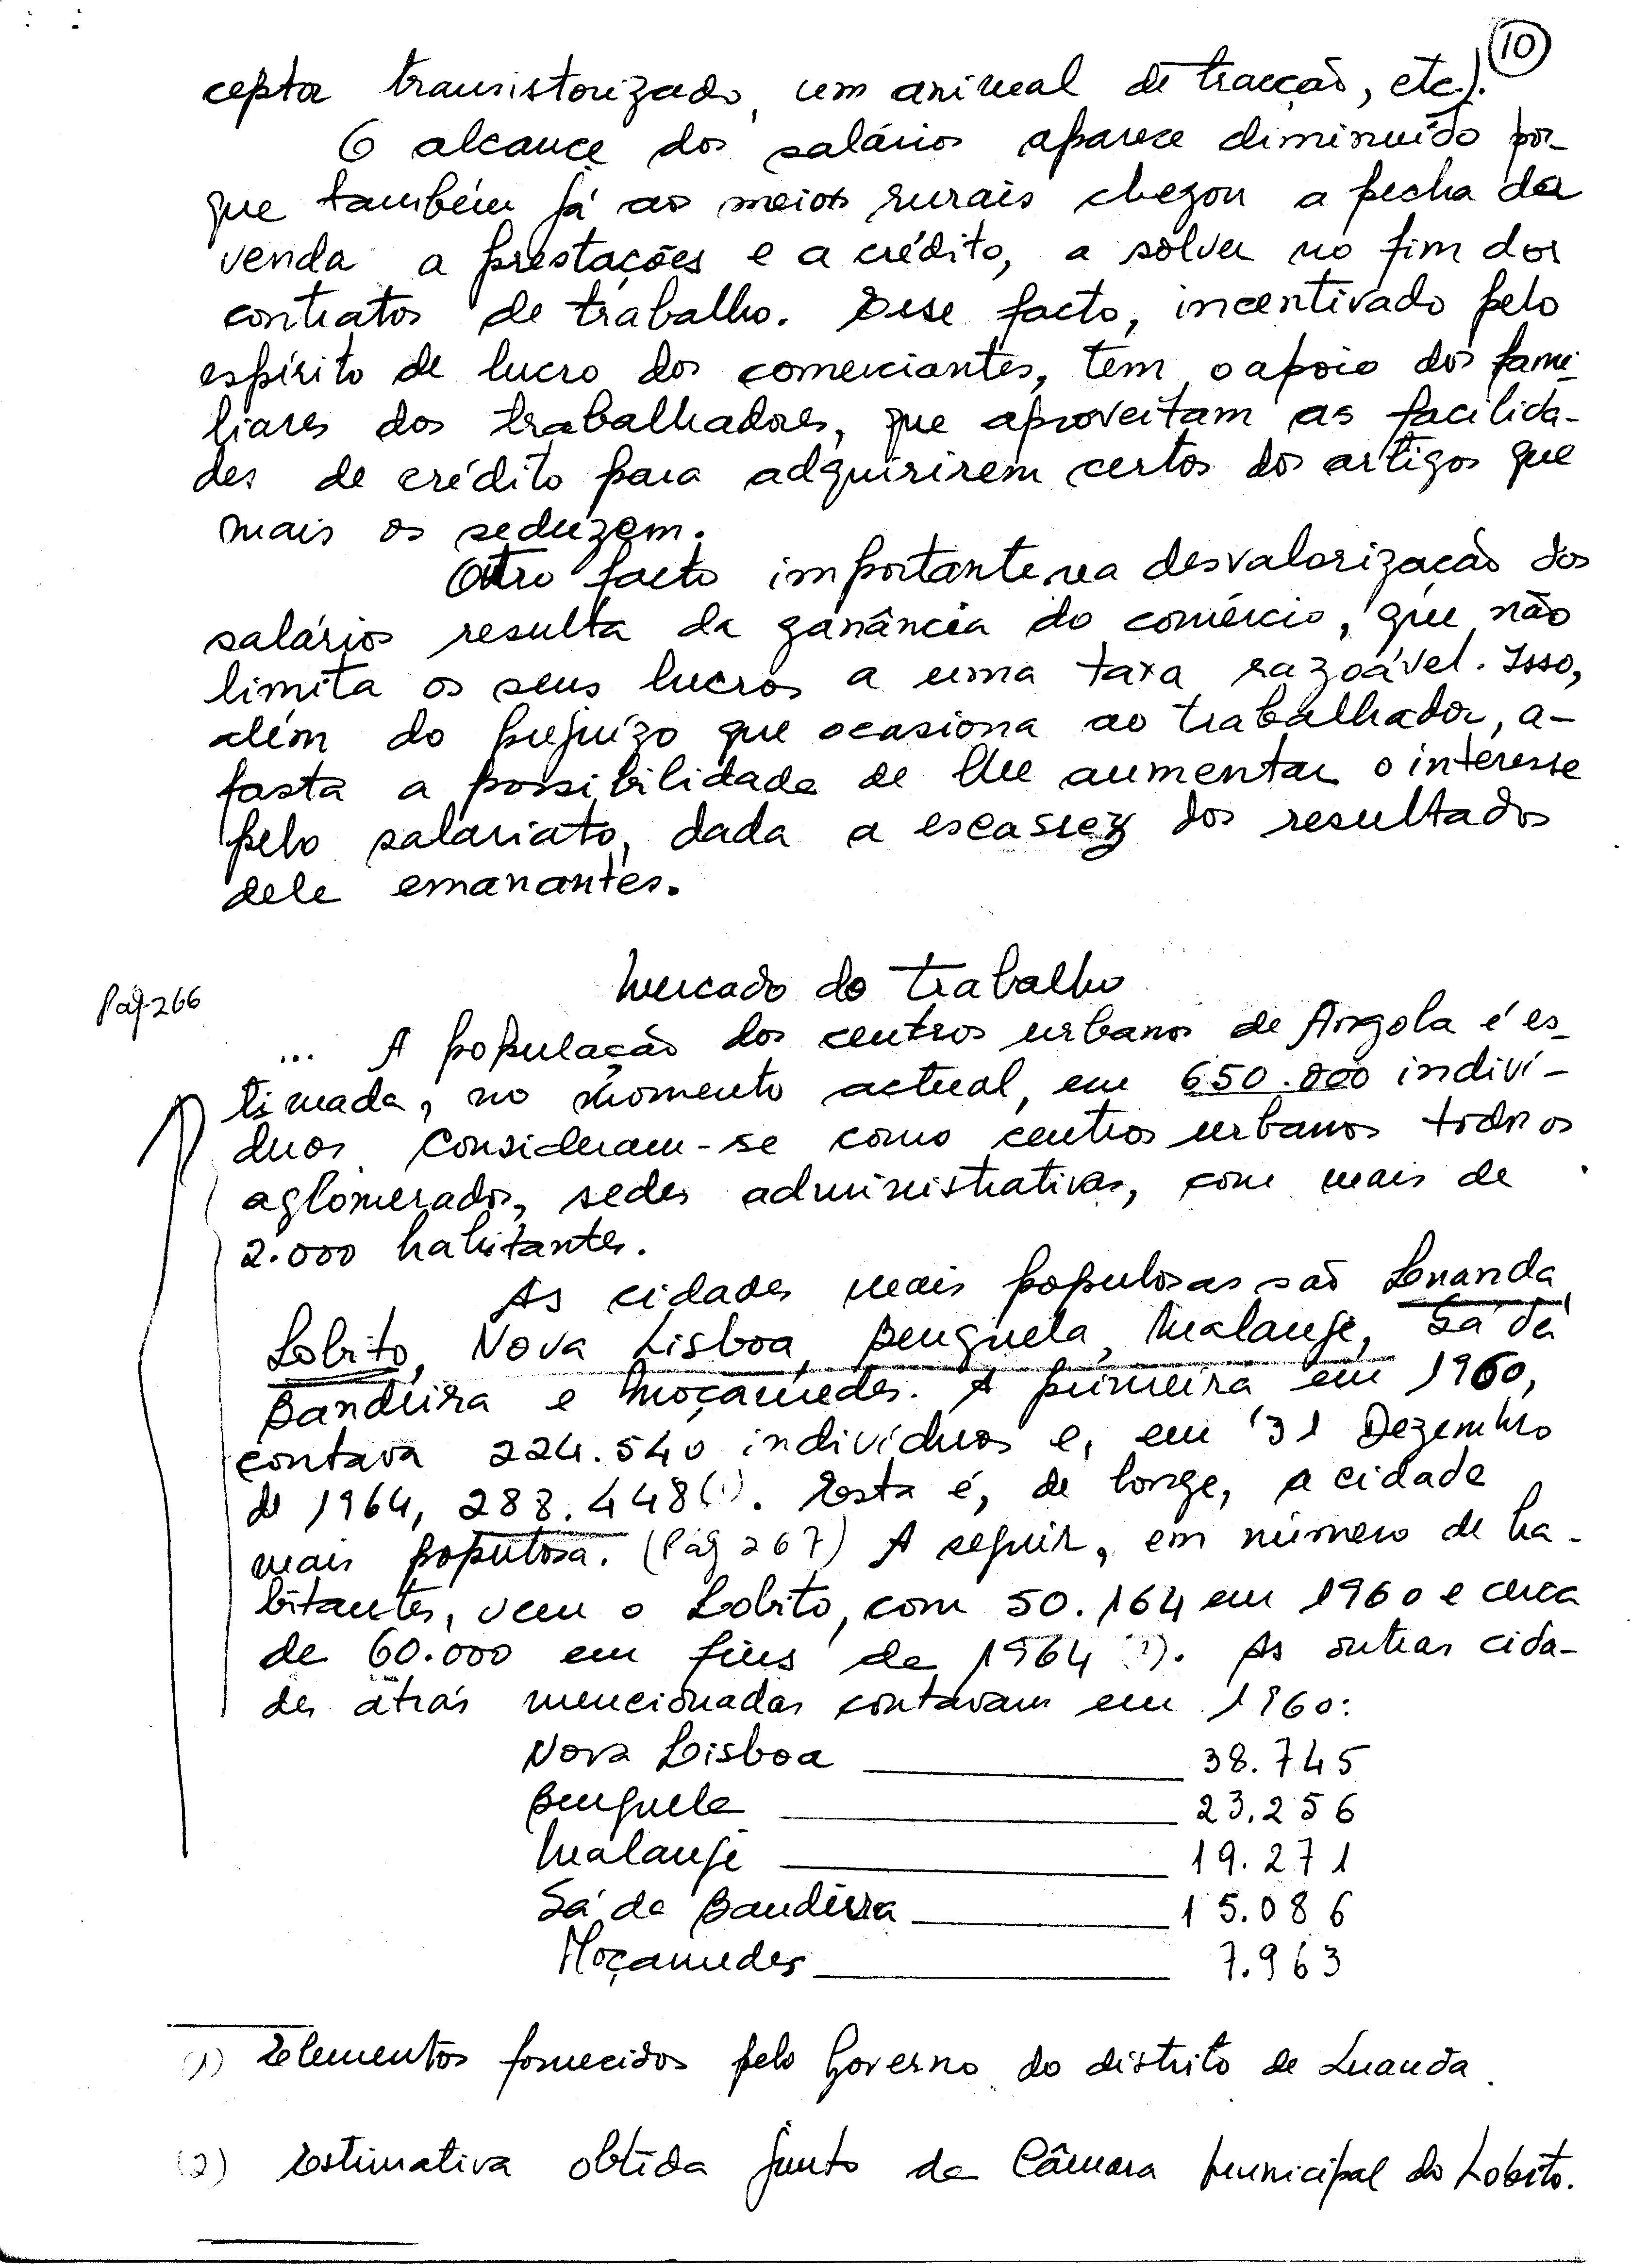 10
ceptor transistorizado, um animal de tracção, etc.).
O alcance dos salários aparece diminuído por-
que também já aos meios rurais chegou a pecha da
venda a prestações e a crédito, a solver no fim dos
contratos de trabalho. Esse facto, incentivado pelo
espírito de lucro dos comerciantes, tem o apoio dos fami-
liares dos trabalhadores, que aproveitam as facilida-
des de crédito para adquirirem certos dos artigos que
mais os seduzem.
Outro facto importante na desvalorização dos
salários resulta da ganância do comércio, que não
limita os seus lucros a uma taxa razoável. Isso,
além do prejuízo que ocasiona ao trabalhador, a-
fasta a possibilidade de lhe aumentar o interesse
pelo salariato, dada a escassez dos resultados
dele emanantes.
Mercado do trabalho
Pág. 266
... A população dos centros urbanos de Angola é es-
timada, no momento actual, em 650.000 indiví-
duos. Consideram-se como centros urbanos todos os
aglomerados, sedes administrativas, com mais de
2.000 habitantes.
As cidades mais populosas são Luanda,
Lobito, Nova Lisboa, Benguela, Malanje, Sá da
Bandeira e Moçâmedes. A primeira em 1960,
contava 224.540 indivíduos e, em 31 Dezembro
de 1964, 288.448 (1). Esta é, de longe, a cidade
mais populosa. (Pág 267) A seguir, em número de ha-
bitantes, vem o Lobito, com 50.164 em 1960 e cerca
de 60.000 em fins de 1964 (2). As outras cida-
des atrás mencionadas contavam em 1960:
Nova Lisboa 38.745
Benguela 23.256
Malanje 19.271
Sá da Bandeira 15.086
Moçamedes 7.963
(1) Elementos fornecidos pelo Governo do distrito de Luanda.
(2) Estimativa obtida junto da Câmara Municipal do Lobito.